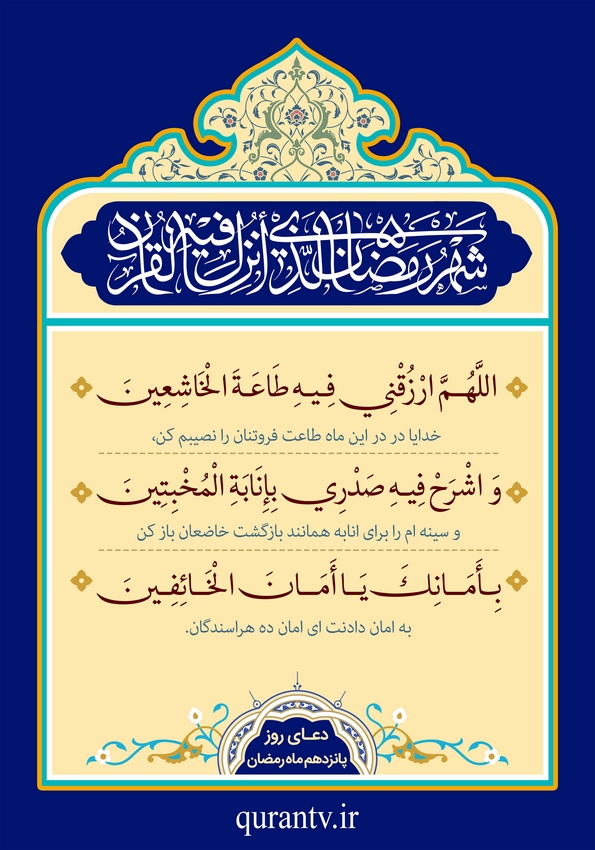 شَهْرُ رَمَضَانَ الَّذِي أُنْزِلَ فِيهِ الْقُرْآنُ
اللَّهُمَّ ارْزُقْنِي فِيهِ طَاعَةَ الْخَاشِعِينَ
خدایا در در این ماه طاعت فروتنان را نصیبم کن،
وَ اشْرَحْ فِيهِ صَدْرِي بِإِنَابَةِ الْمُخْبِتِينَ
و سینه ام را برای انابه همانند بازگشت خاضعان باز کن
بِأَمَانِكَ يَا أَمَانَ الْخَائِفِينَ
به امان دادنت ای امان ده هراسندگان.
دعای روز
پانزدهم ماه رمضان
qurantv.ir